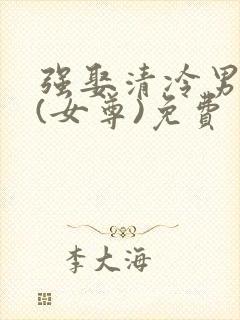 强娶清冷男
(女尊)免费
李大海